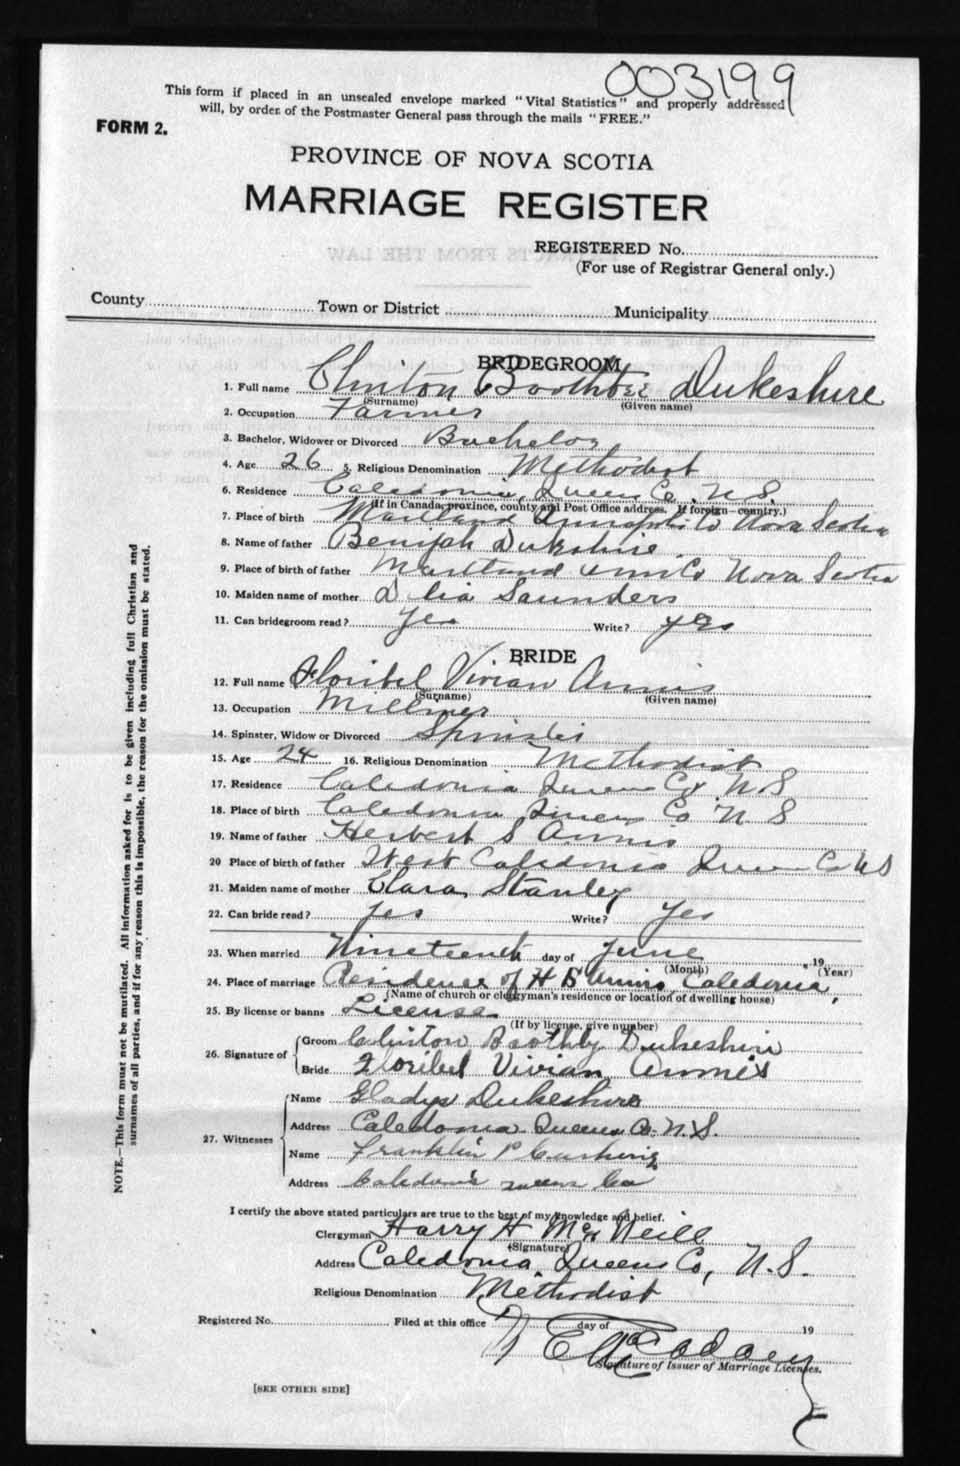 003199
This form if placed in an unsealed envelope marked "Vital Statistics" and properly addressed
will, by order of the Postmaster General pass through the mails "FREE."
FORM 2.
PROVINCE OF NOVA SCOTIA
MARRIAGE REGISTER
REGISTERED No.
(For use of Registrar General only.)
County Town or District Municipality
BRIDEGROOM
1. Full name Clinton Boothbee Dukeshire
(Surname) (Given name)
2. Occupation Farmer
3. Bachelor, Widower or Divorced Bachelor
4. Age 26 5. Religious Denomination Methodist
6. Residence Caledonia, Queens Co. N.S.
(If in Canada, province, county and Post Office address. If foreign—country.)
7. Place of birth Maitland Annapolis Co Nova Scotia
8. Name of father Benijah Dukshire
9. Place of birth of father Maitland Ann Co Nova Scotia
10. Maiden name of mother Delia Saunders
11. Can bridegroom read? Yes Write? yes
BRIDE
12. Full name Floribel Vivian Annis
(Surname) (Given name)
13. Occupation Milliner
14. Spinster, Widow or Divorced Spinster
15. Age 24 16. Religious Denomination Methodist
17. Residence Caledonia Queens Co N S
18. Place of birth Caledonia Queens Co N S
19. Name of father Herbert S Annis
20 Place of birth of father West Caledonia Queens Co N S
21. Maiden name of mother Clara Stanley
22. Can bride read? Yes Write? Yes
23. When married Nineteenth day of June 19
(Month) (Year)
24. Place of marriage Residence of H S Annis, Caledonia,
(Name of church or clergyman's residence or location of dwelling house)
25. By license or banns License
(If by license, give number)
26. Signature of Groom Clinton Boothby Dukeshire
Bride Floribel Vivian Annis
27. Witnesses
Name Gladys Dukeshire
Address Caledonia Queens Co. N.S.
Name Franklin P Cushing
Address Caledonia Queens Co
I certify the above stated particulars are true to the best of my knowledge and belief.
Clergyman Harry H McNeill
(Signature)
Address Caledonia, Queens Co, N.S.
Religious Denomination Methodist
Registered No. Filed at this office day of 19
Signature of Issuer of Marriage Licenses.
[SEE OTHER SIDE]
NOTE.—This form must not be mutilated. All information asked for is to be given including full Christian and
surnames of all parties, and if for any reason this is impossible, the reason for the omission must be stated.